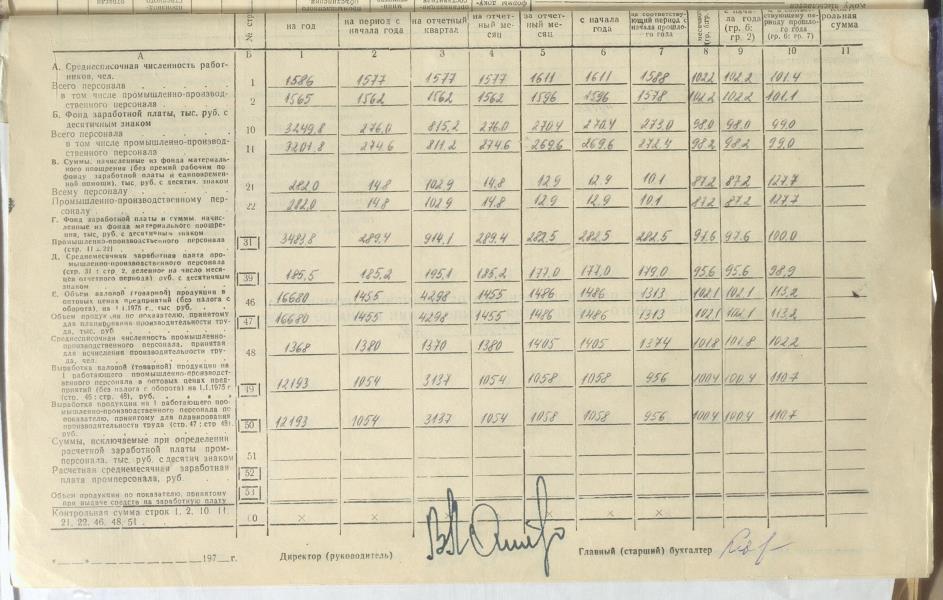 № стр.
на год
на период с начала года
на отчетный квартал
на отчетный месяц
за отчетный месяц
с начала года
за соответствующий период с начала прошлого года
ла года (гр. 6: гр. 2)
ствующему периоду прошлого года (гр. 6: гр. 7)
рольная сумма
А Б 1 2 3 4 5 6 7 8 9 10 11
А. Среднесписочная численность работ-
ников, чел.
Всего персонала 1 1586 1577 1577 1577 1611 1611 1588 102,2 102,2 101,4
в том числе промышленно-производ-
ственного персонала 2 1565 1562 1562 1562 1596 1596 1578 102,2 102,2 101,1
Б. Фонд заработной платы, тыс. руб. с
десятичным знаком
Всего персонала 10 3249,8 276,0 815,2 276,0 270,4 270,4 273,0 98,0 98,0 99,0
в том числе промышленно-производ-
ственного персонала 11 3201,8 274,6 811,2 274,6 269,6 269,6 272,4 98,2 98,2 99,0
В. Суммы, начисленные из фонда материаль-
ного поощрения (без премий рабочим по
фонду заработной платы и единовремен-
ной помощи), тыс. руб. с десятич. знаком
Всему персоналу 21 282,0 14,8 102,9 14,8 12,9 12,9 10,1 87,2 87,2 127,7
Промышленно-производственному пер-
соналу 22 282,0 14,8 102,9 14,8 12,9 12,9 10,1 87,2 87,2 127,7
Г. Фонд заработной платы и суммы, начис-
ленные из фонда материального поощре-
ния, тыс. руб. с десятичным знаком
Промышленно-производственного персонала
(стр. 11 + 22) 31 3483,8 289,4 914,1 289,4 282,5 282,5 282,5 97,6 97,6 100,0
Д. Среднемесячная заработная плата про-
мышленно-производственного персонала
(стр. 31 : стр. 2, деленное на число меся-
цев отчетного периода), руб. с десятичным
знаком 39 185,5 185,2 195,1 185,2 177,0 177,0 179,0 95,6 95,6 98,9
Е. Объем валовой (товарной) продукции в
оптовых ценах предприятий (без налога с
оборота), на 1.I.1975 г., тыс. руб. 46 16680 1455 4298 1455 1486 1486 1313 102,1 102,1 113,2
Объем продукции по показателю, принятому
для планирования производительности тру-
да, тыс. руб. 47 16680 1455 4298 1455 1486 1486 1313 102,1 102,1 113,2
Среднесписочная численность промышленно-
производственного персонала, принятая
для исчисления производительности тру-
да, чел. 48 1368 1380 1370 1380 1405 1405 1374 101,8 101,8 102,2
Выработка валовой (товарной) продукции на
1 работающего промышленно-производст-
венного персонала в оптовых ценах пред-
приятий (без налога с оборота) на 1.I.1975 г.
(стр. 46 : стр. 48), руб. 49 12193 1054 3137 1054 1058 1058 956 100,4 100,4 110,7
Выработка продукции на 1 работающего про-
мышленно-производственного персонала по
показателю, принятому для планирования
производительности труда (стр. 47 : стр. 48),
руб. 50 12193 1054 3137 1054 1058 1058 956 100,4 100,4 110,7
Суммы, исключаемые при определении
расчетной заработной платы пром-
персонала, тыс. руб. с десятич. знаком 51
Расчетная среднемесячная заработная
плата промперсонала, руб. 52
Объем продукции по показателю, принятому
при выдаче средств на заработную плату 53
Контрольная сумма строк 1, 2, 10, 11,
21, 22, 46, 48, 51 60 × × × × × × ×
"__"__________197__г. Директор (руководитель) Главный (старший) бухгалтер